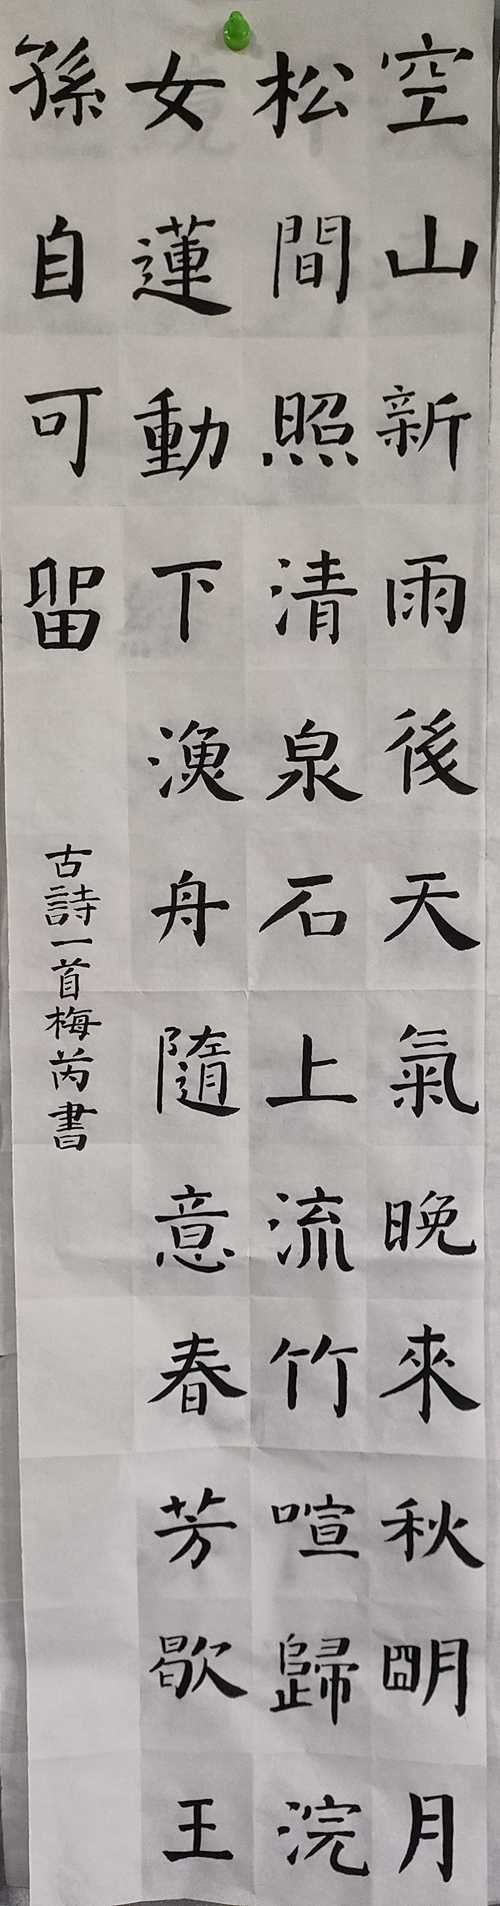 空山新雨後天氣晚來秋明月
松間照清泉石上流竹喧歸浣
女蓮動下漁舟隨意春芳歇王
孫自可留
古詩一首梅芮書